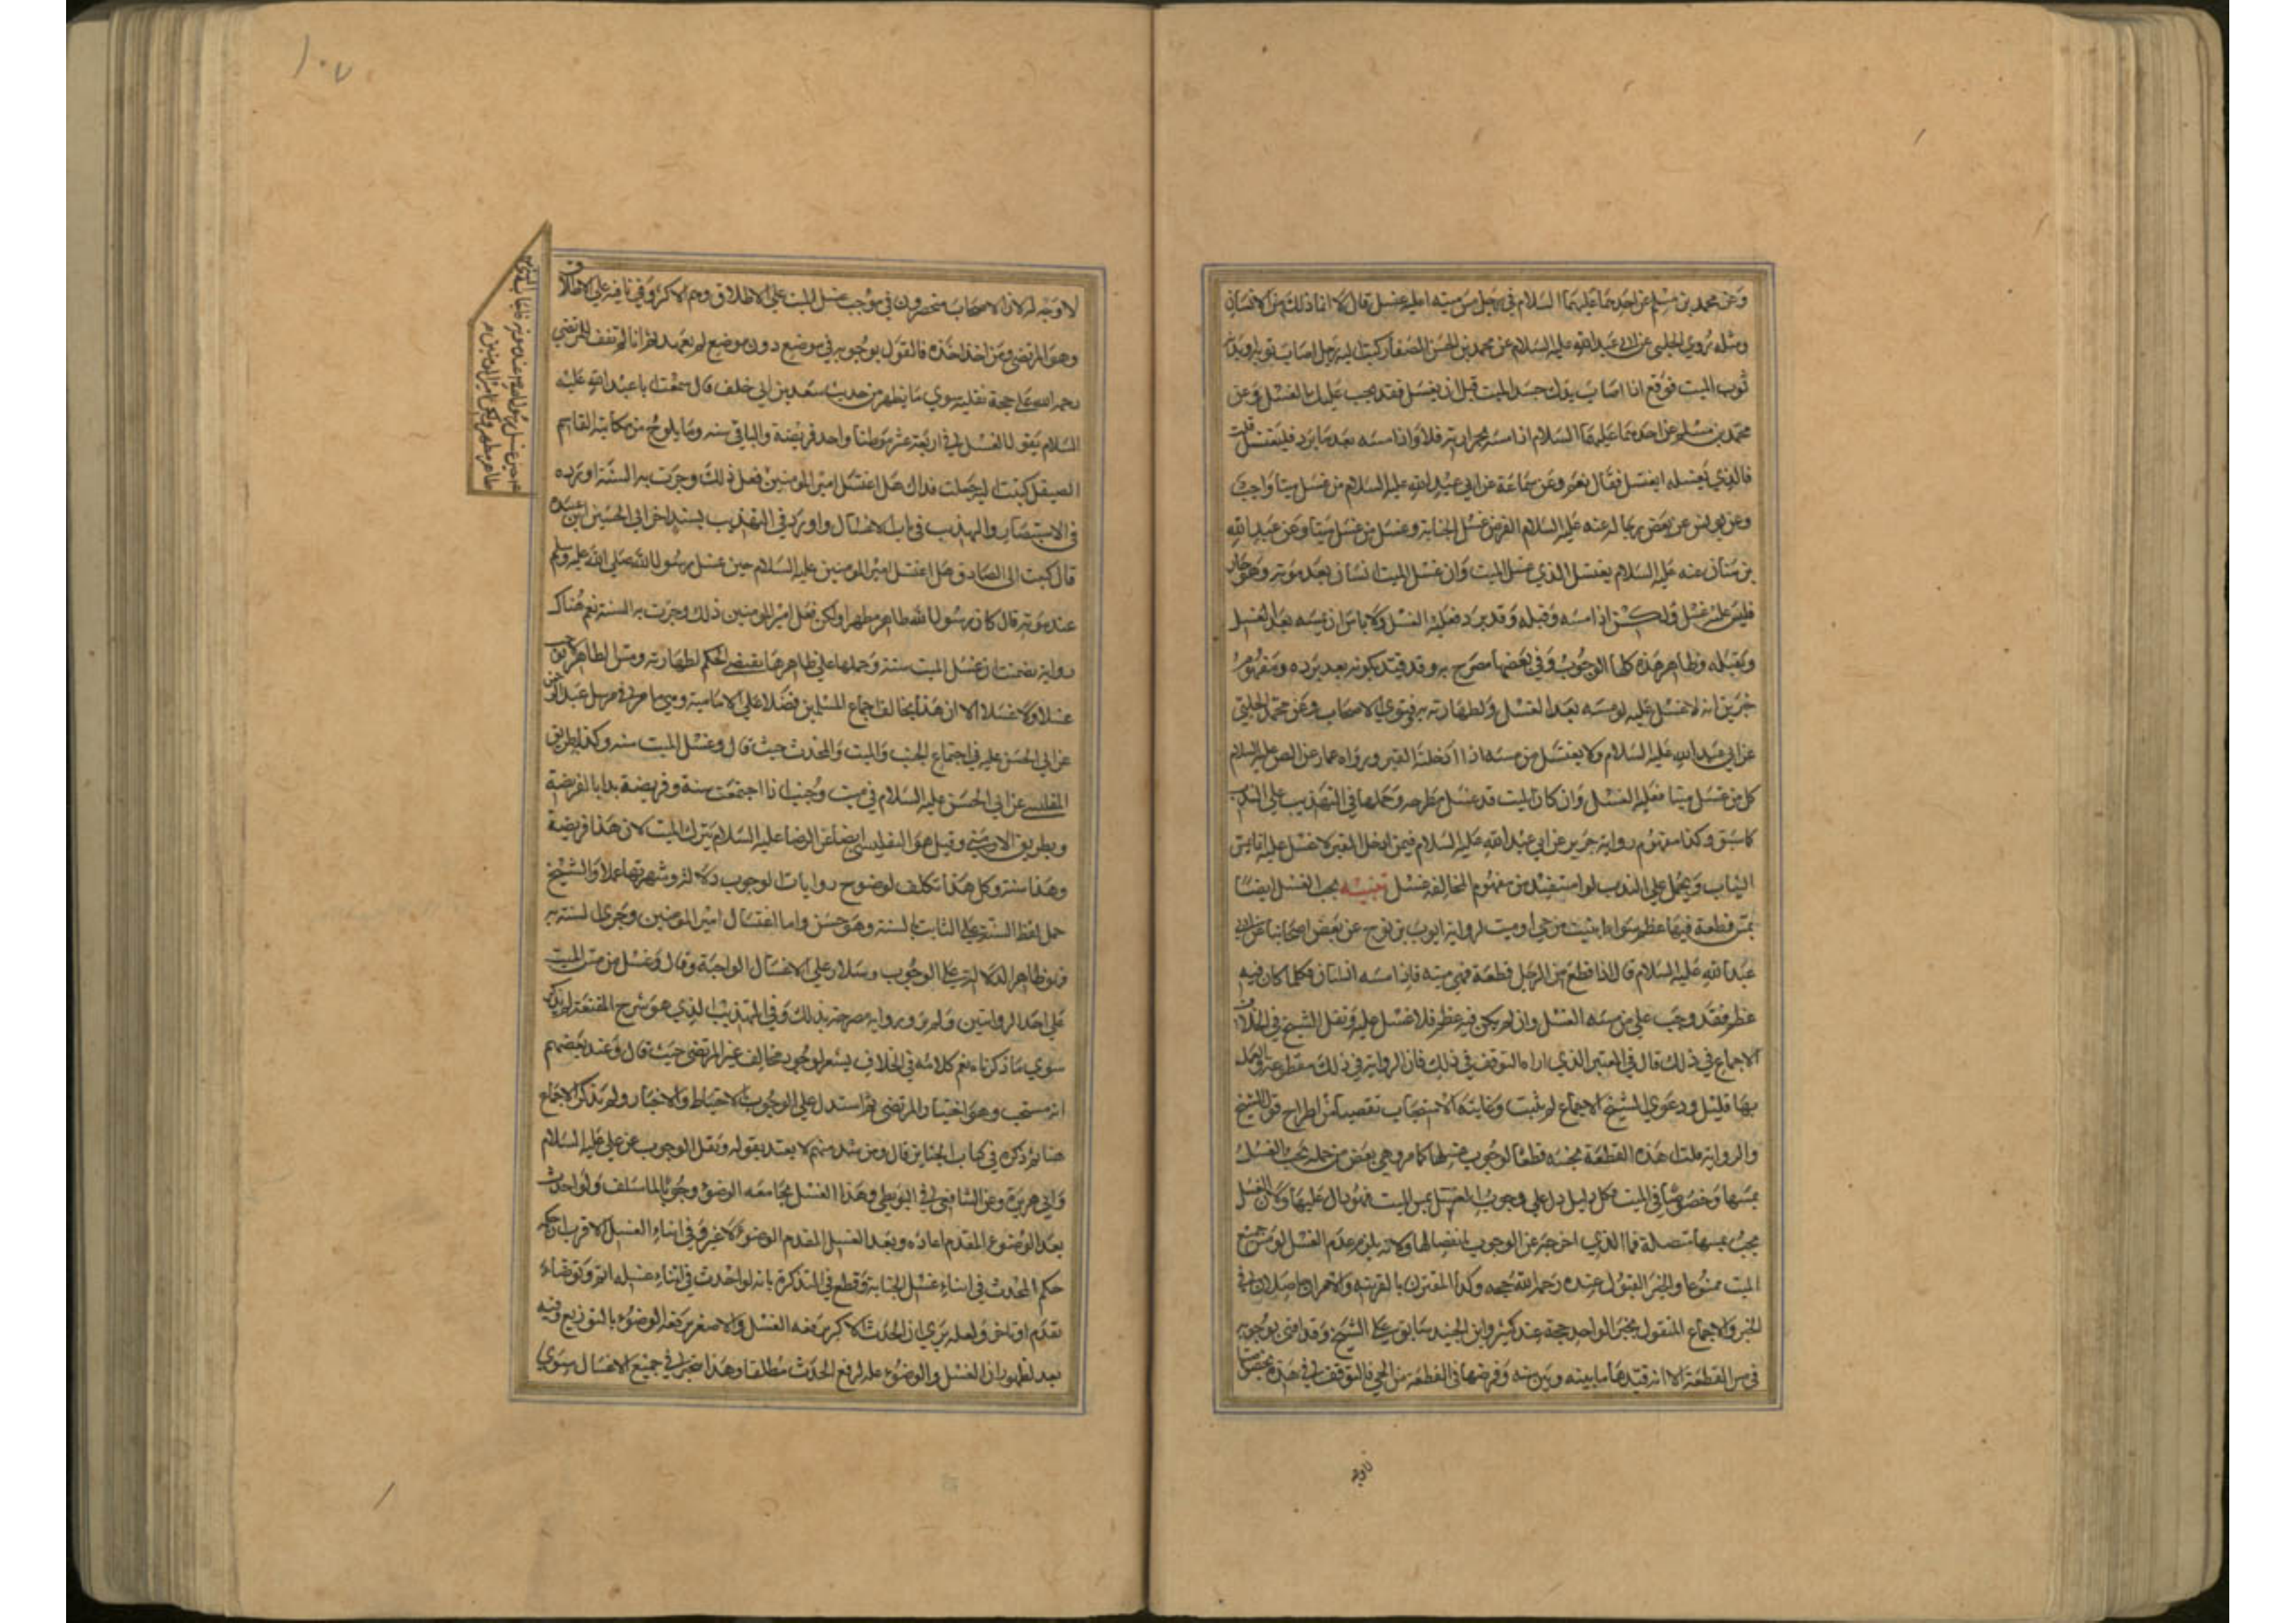 وعن محمد بن مسلم عن احدهما عليهما السلام في رجل مس ميته اعليه غسل قال لا انما ذلك من الانسان
ومثله روي الحلبي عن ابي عبد الله عليه السلام عن محمد بن الحسن الصفار كتبت اليه رجل اصاب ثوبه او بدنه
ثوب الميت فوقع اذا اصاب يدك جسد الميت قبل ان يغسل فقد يجب عليك الغسل وعن
محمد بن مسلم عن احدهما عليهما السلام اذا مسه بحرارته فلا واذا مسه بعد ما برد فليغتسل قلت
فالذي يغسله ايغتسل فقال نعم وعن سماعة عن ابي عبد الله عليه السلام من غسل ميتا واجب
وعن يونس عن بعض رجاله عنه عليه السلام الفرض غسل الجنابة وغسل من غسل ميتا وعن عبد الله
بن سنان عنه عليه السلام يغتسل الذي غسل الميت وان غسل الميت انسان بعد موته وهو حار
فليس عليه غسل ولكن اذا مسه وقبله وقد برد فعليه الغسل ولا باس ان يمسه بعد الغسل
ويقبله وظاهر هذه كلها الوجوب وفي بعضها مصرح به وقد قيد بكونه بعد برده ومفهوم
خرين انه لا غسل عليه لو مسه بعد الغسل ولطهارته به فتوي الاصحاب وعن محمد الحلبي
عن ابي عبد الله عليه السلام ولا يغتسل من مسه اذا ادخله القبر وروراه عمار عن الص عليه السلام
كل من غسل ميتا فعليه الغسل وان كان الميت قد غسل مطرحه وحملها في التهذيب علي الندب
كما سبق وكذا مفهوم رواية حريز عن ابي عبد الله عليه السلام فيمن ادخل القبر لا غسل عليه انما يمس
الثياب ويحمل علي الندب لو استفيد من مفهوم المخالفه غسل تنبيه يجب الغسل ايضا
بمس قطعة فيها عظم سواء ابينت من حي او ميت لرواية ايوب بن نوح عن بعض اصحابنا عن ابي
عبد الله عليه السلام قال اذا قطع من الرجل قطعة فهي ميته فاذا مسه انسان فكلما كان فيه
عظم فقد وجب علي من مسه الغسل وان لم يكن فيه عظم فلا غسل عليه ونقل الشيخ في الخلاف
الاجماع في ذلك قال في المعتبر الذي اراه التوقف في ذلك فان الرواية في ذلك مقطوعة والعمل
بها قليل ودعوي الشيخ الاجماع لم يثبت وغايته الاستصحاب تفصيا من اطراح قول الشيخ
والرواية قلت هذه القطعة نجسه قطعا لوجوب غسلها كما مر وهي بعض من جمله يجب الغسل
بمسها وخصوصا في الميت فكل دليل دل علي وجوب الغسل بمس الميت فهو دال عليها ولان الغسل
يجب بمسها متصلة فما الذي اخرجه عن الوجوب بانفصالها ولانه يلزم عدم الغسل لو مس جميع
الميت ممزوعا والخبر القبول عنده رحمه الله حجه وكذا المقترن بالقرينه والامران حاصلان في
الخبر والاجماع المنقول بخبر الواحد حجة عند كثير وابن الجنيد سابق علي الشيخ وقد افتي بوجوبه
في مس القطعة الا انه قيدها ما بينه وبين سنه وفرضها في القطعة من الحي فالتوقف في هذه بخصوصها
لاوجه
لا وجه له لان الاصحاب منحصرون في موجب غسل الميت علي الاطلاق وهم الاكثر وفي نافيه علي الاطلاق
وهو المرتضي ومن اخذ اخذه فالقول بوجوبه في موضع دون موضع لم يعهد ثم انا لم نقف للمرتضي
رحمه الله علي حجة نقلية سوي ما يظهر من حديث سعد بن ابي خلف قال سمعت ابا عبد الله عليه
السلام يقول الغسل في اربعة عشر موطنا واحد فريضة والباقي سنه وما يلوح من مكاتبة القاسم
الصيقل كتبت اليه جعلت فداك هل اغتسل امير المومنين فعل ذلك وجرت به السنة اورده
في الاستبصار والتهذيب في باب الاغسال واورد في التهذيب بسند اخر الي الحسين بن عبيد
قال كتبت الي الصادق هل اغتسل امير المومنين عليه السلام حين غسل رسول الله صلي الله عليه وسلم
عند موته قال كان رسول الله طاهر مطهر ولكن فعل امير المومنين ذلك وجرت به السنة نعم هناك
رواية تضمنت ان غسل الميت سنة وحملها علي ظاهرها يقتضي الحكم لطهارته ومس الطاهر لا يوجب
غسلا ولا غسلا الا ان هذا يخالف اجماع المسلمين فضلا علي الامامية وهي ما مر في مرسل عبد الرحمن
عن ابي الحسن عليه في اجتماع الجنب والميت والمحدث حيث قال وغسل الميت سنه وكذا بطريق
التفليسي عن ابي الحسن عليه السلام في ميت وجنب اذا اجتمعت سنة وفريضة بدا بالفريضة
وبطريق الارمني وقيل هو التفليسي ايضا عن الرضا عليه السلام يترك الميت لان هذا فريضة
وهذا سنة وكل هذا تكلف لوضوح روايات الوجوب دلالة وشهرتها عملا والشيخ
حمل لفظ السنة علي الثابت بالسنة وهو حسن واما اغتسال امير المومنين وجري السنة به
فهو ظاهر الدلالة علي الوجوب وسلار علي الاغسال الواجبة وقال وغسل من مس الميت
علي احد الروايتين ولم يرو رواية مصرحة بذلك وفي التهذيب الذي هو شرح المقنعة لم يذكر
سوي ما ذكرناه نعم كلامه في الخلاف يشعر بوجود مخالف غير المرتضي حيث قال وعند بعضهم
انه مستحب وهو اختيار المرتضي ثم استدل علي الوجوب بالاحتياط والاخبار ولم يذكر الاجماع
هنا ثم ذكره في كتاب الجنايز قال ومن شذ منهم لا يعتد بقوله ونقل الوجوب عن علي عليه السلام
وابي هريرة وعن الشافعي في البويطي وهذا الغسل يجامعه الوضو وجوبا لما سلف ولو احدث
بعد الوضوء المقدم اعاده وبعد الغسل المقدم الوضوء لا غير وفي اثناء الغسل الاقرب ان حكمه
حكم المحدث في اثناء غسل الجنابة وقطع في التذكرة بانه لو احدث في اثناء غسله اتم وتوضاء
تقدم او تاخر ولعله يري ان الحدث الاكبر يرفعه الغسل والاصغر يرفعه الوضوء بالتوزيع وفيه
بعد لظهور ان الغسل والوضوء علة لرفع الحدث مطلقا وهذا سحب في جميع الاغسال سوي
حين غسل رسول الله عند موته فاجاب النبي
طاهر مطهر ولكن امير المومنين
١٠٧